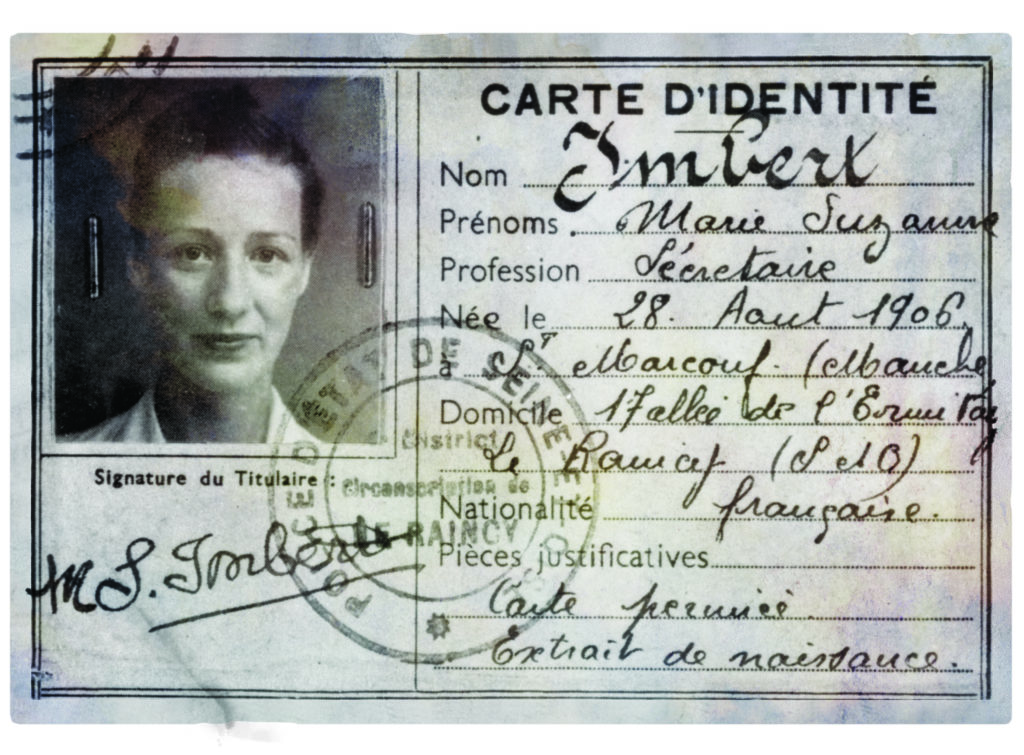 CARTE D'IDENTITÉ
Nom Imbert
Prénoms Marie Suzanne
Profession Sécretaire
Née le 28. Aout 1906.
à St Marcouf. (Manche
Domicile 17 allée de l'Ermitag
Le Raincy (S et O)
Nationalité française.
Pièces justificatives
Carte permisé
Extrait de naissance.
Signature du Titulaire :
M S. Imbert
POLICE D'ETAT DE SEINE-ET-OISE
District
Circonscription de
LE RAINCY